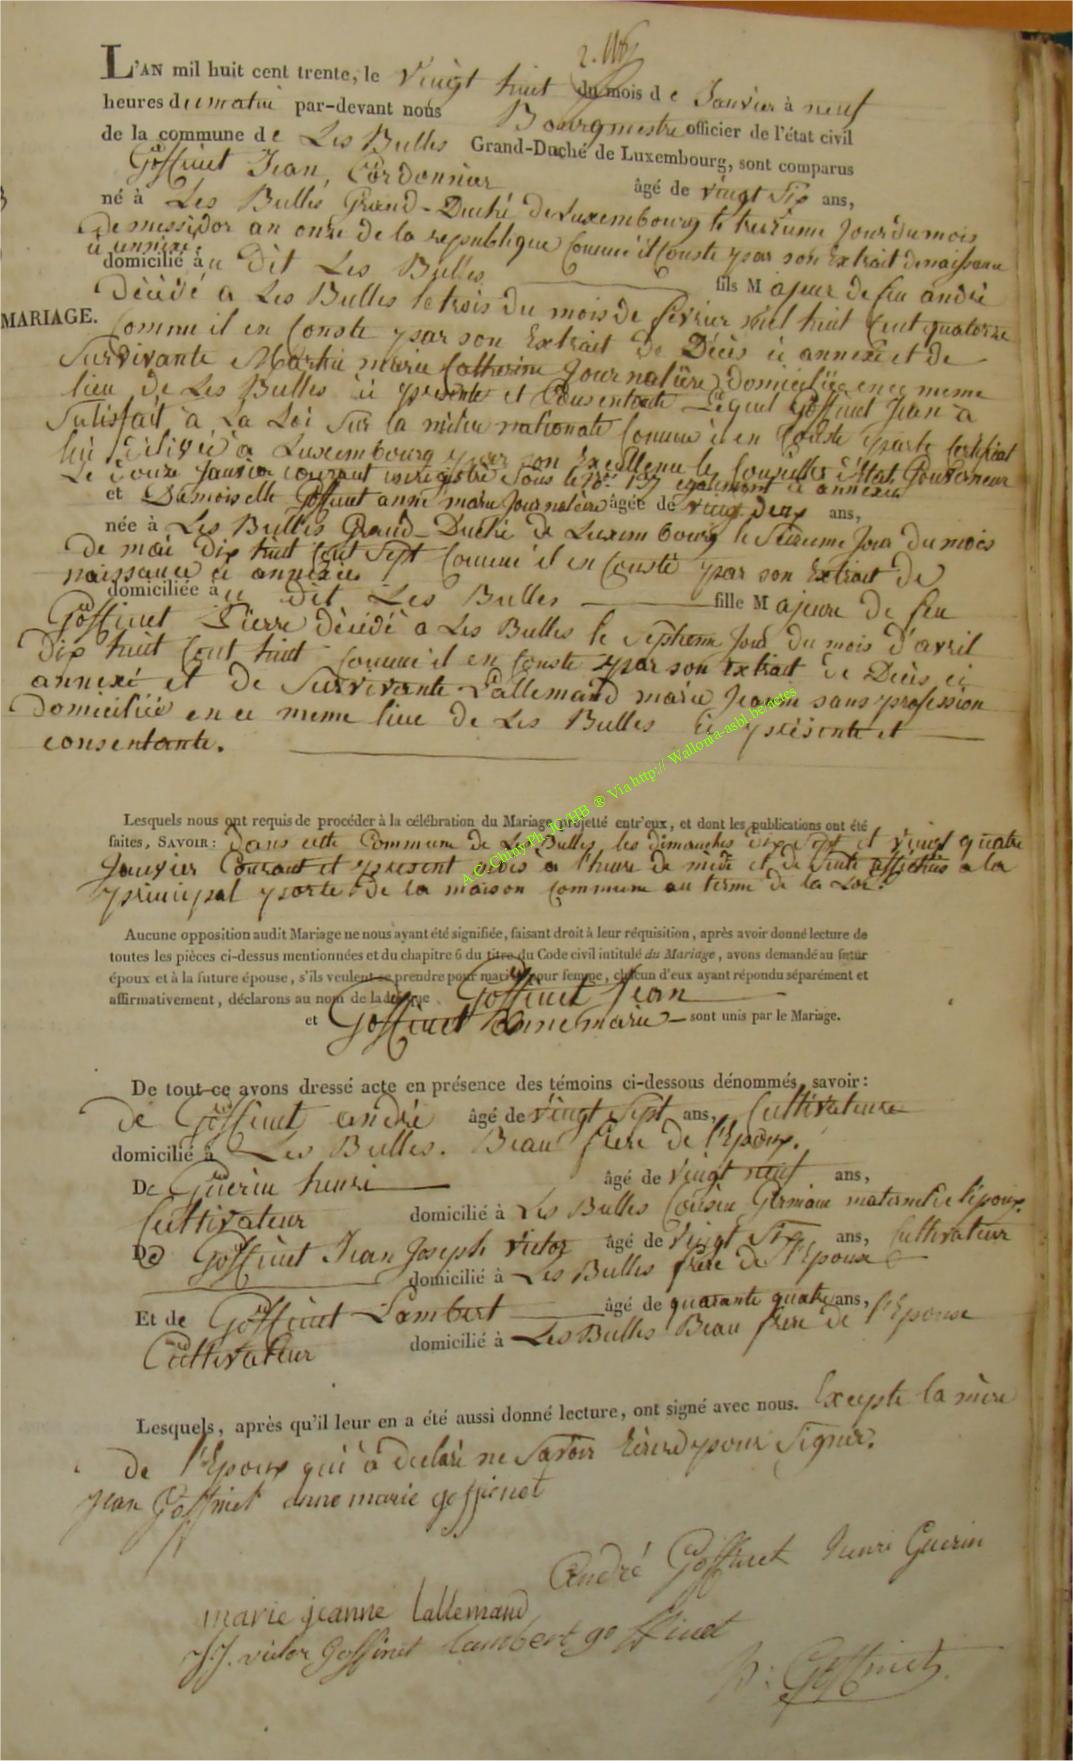 L'AN mil huit cent trente, le Vingt huit du mois de Janvier à neuf
heures du matin par-devant nous Bourgmestre officier de l'état civil
de la commune de Les Bulles Grand-Duché de Luxembourg, sont comparus
Goffinet Jean, Cordonnier âgé de vingt Six ans,
né à Les Bulles Grand-Duché de Luxembourg le treizieme Jour du mois
de messidor an onze de la republique Comme il Conste par son Extrait de naissance
ci annexé.
domicilié au dit Les Bulles fils Majeur de feu andré
Décédé a Les Bulles le trois du mois de fevrier mil huit Cent quatorze
MARIAGE.
Comme il en Conste par son Extrait de Décès ci annexé et de
Survivante Martin marie Catherine Journalière domiciliée en ce meme
lieu de Les Bulles ci présente et Consentante Lequel Goffinet Jean a
Satisfait a La Loi Sur la milice nationale Comme il en Conste par le Certificat
lui Délivré a Luxembourg par son Excellence le Conseiller d'Etat Gouverneur
Le douze Janvier courant enregistré Sous le No. 137 egalement ci annexée
et Damoiselle Goffinet anne marie Journaliere âgée de vingt deux ans,
née à Les Bulles Grand-Duché de Luxembourg le Seizieme Jour du mois
De mai Dix huit Cent Sept Comme il en Conste par son Extrait de
naissance ci annexée
domiciliée au dit Les Bulles fille Majeure de feu
Goffinet Pierre décédé a Les Bulles le Septieme Jour du mois d'avril
Dix huit Cent huit Comme il en Conste par son Extrait de Décès ci
annexé et de Survivante Lallemand marie Jeanne sans profession
Domiciliée en ce meme lieu de Les Bulles ci présente et
consentante.
A.C. Chiny Ph JC/HB ® Via http:// Wallonia-asbl.be/actes
Lesquels nous ont requis de procéder à la célébration du Mariage projetté entr'eux, et dont les publications ont été
faites, SAVOIR: Dans cette Commune de Les Bulles, les dimanches dix Sept et vingt quatre
Janvier Courant et present mois à l'heure de midi et de Suite affichés a la
principal porte de la maison commune au terme de la Loi.
Aucune opposition audit Mariage ne nous ayant été signifiée, faisant droit à leur réquisition, après avoir donné lecture de
toutes les pièces ci-dessus mentionnées et du chapitre 6 du titre du Code civil intitulé du Mariage, avons demandé au futur
époux et à la future épouse, s'ils veulent se prendre pour mari et pour femme, chacun d'eux ayant répondu séparément et
affirmativement, déclarons au nom de la loi que Goffinet Jean
et Goffinet anne marie sont unis par le Mariage.
De tout ce avons dressé acte en présence des témoins ci-dessous dénommés, savoir:
de Goffinet andré âgé de vingt Sept ans, Cultivateur
domicilié à Les Bulles. Beau frere de l'Epoux.
De Guerin henri âgé de vingt neuf ans,
Cultivateur domicilié à Les Bulles Cousin Germain maternel de l'époux
De Goffinet Jean Joseph Victor âgé de vingt Six ans, Cultivateur
domicilié à Les Bulles frere de l'Epouse
Et de Goffinet Lambert âgé de quarante quatre ans,
Cultivateur domicilié à Les Bulles Beau frere de l'Epouse
Lesquels, après qu'il leur en a été aussi donné lecture, ont signé avec nous. Excepte la mère
de l'Epoux qui a declaré ne Savoir Ecrire pour Signer.
Jean Goffinet anne marie goffienet
André Goffinet henri Guerin
marie jeanne Lallemand
J.J. victor Goffinet Lambert goffinet
Goffinet